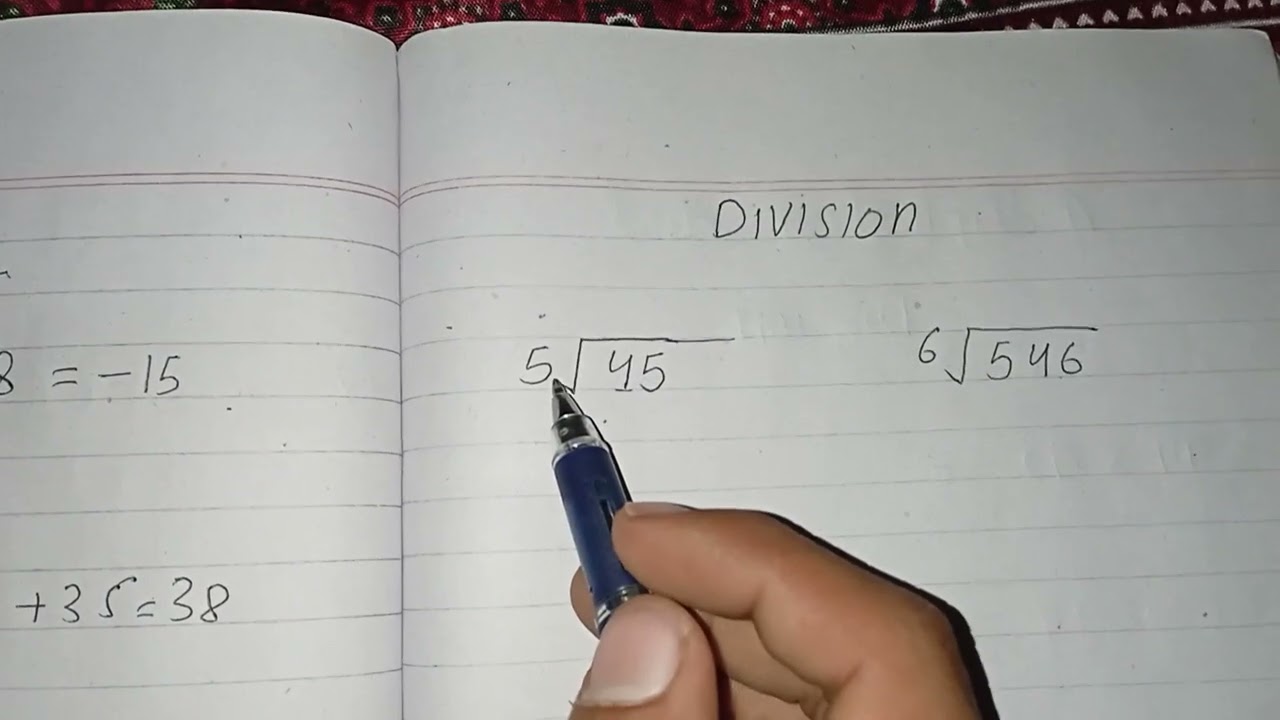 8 = -15
+35=38
DIVISIOn
5√45 6√546